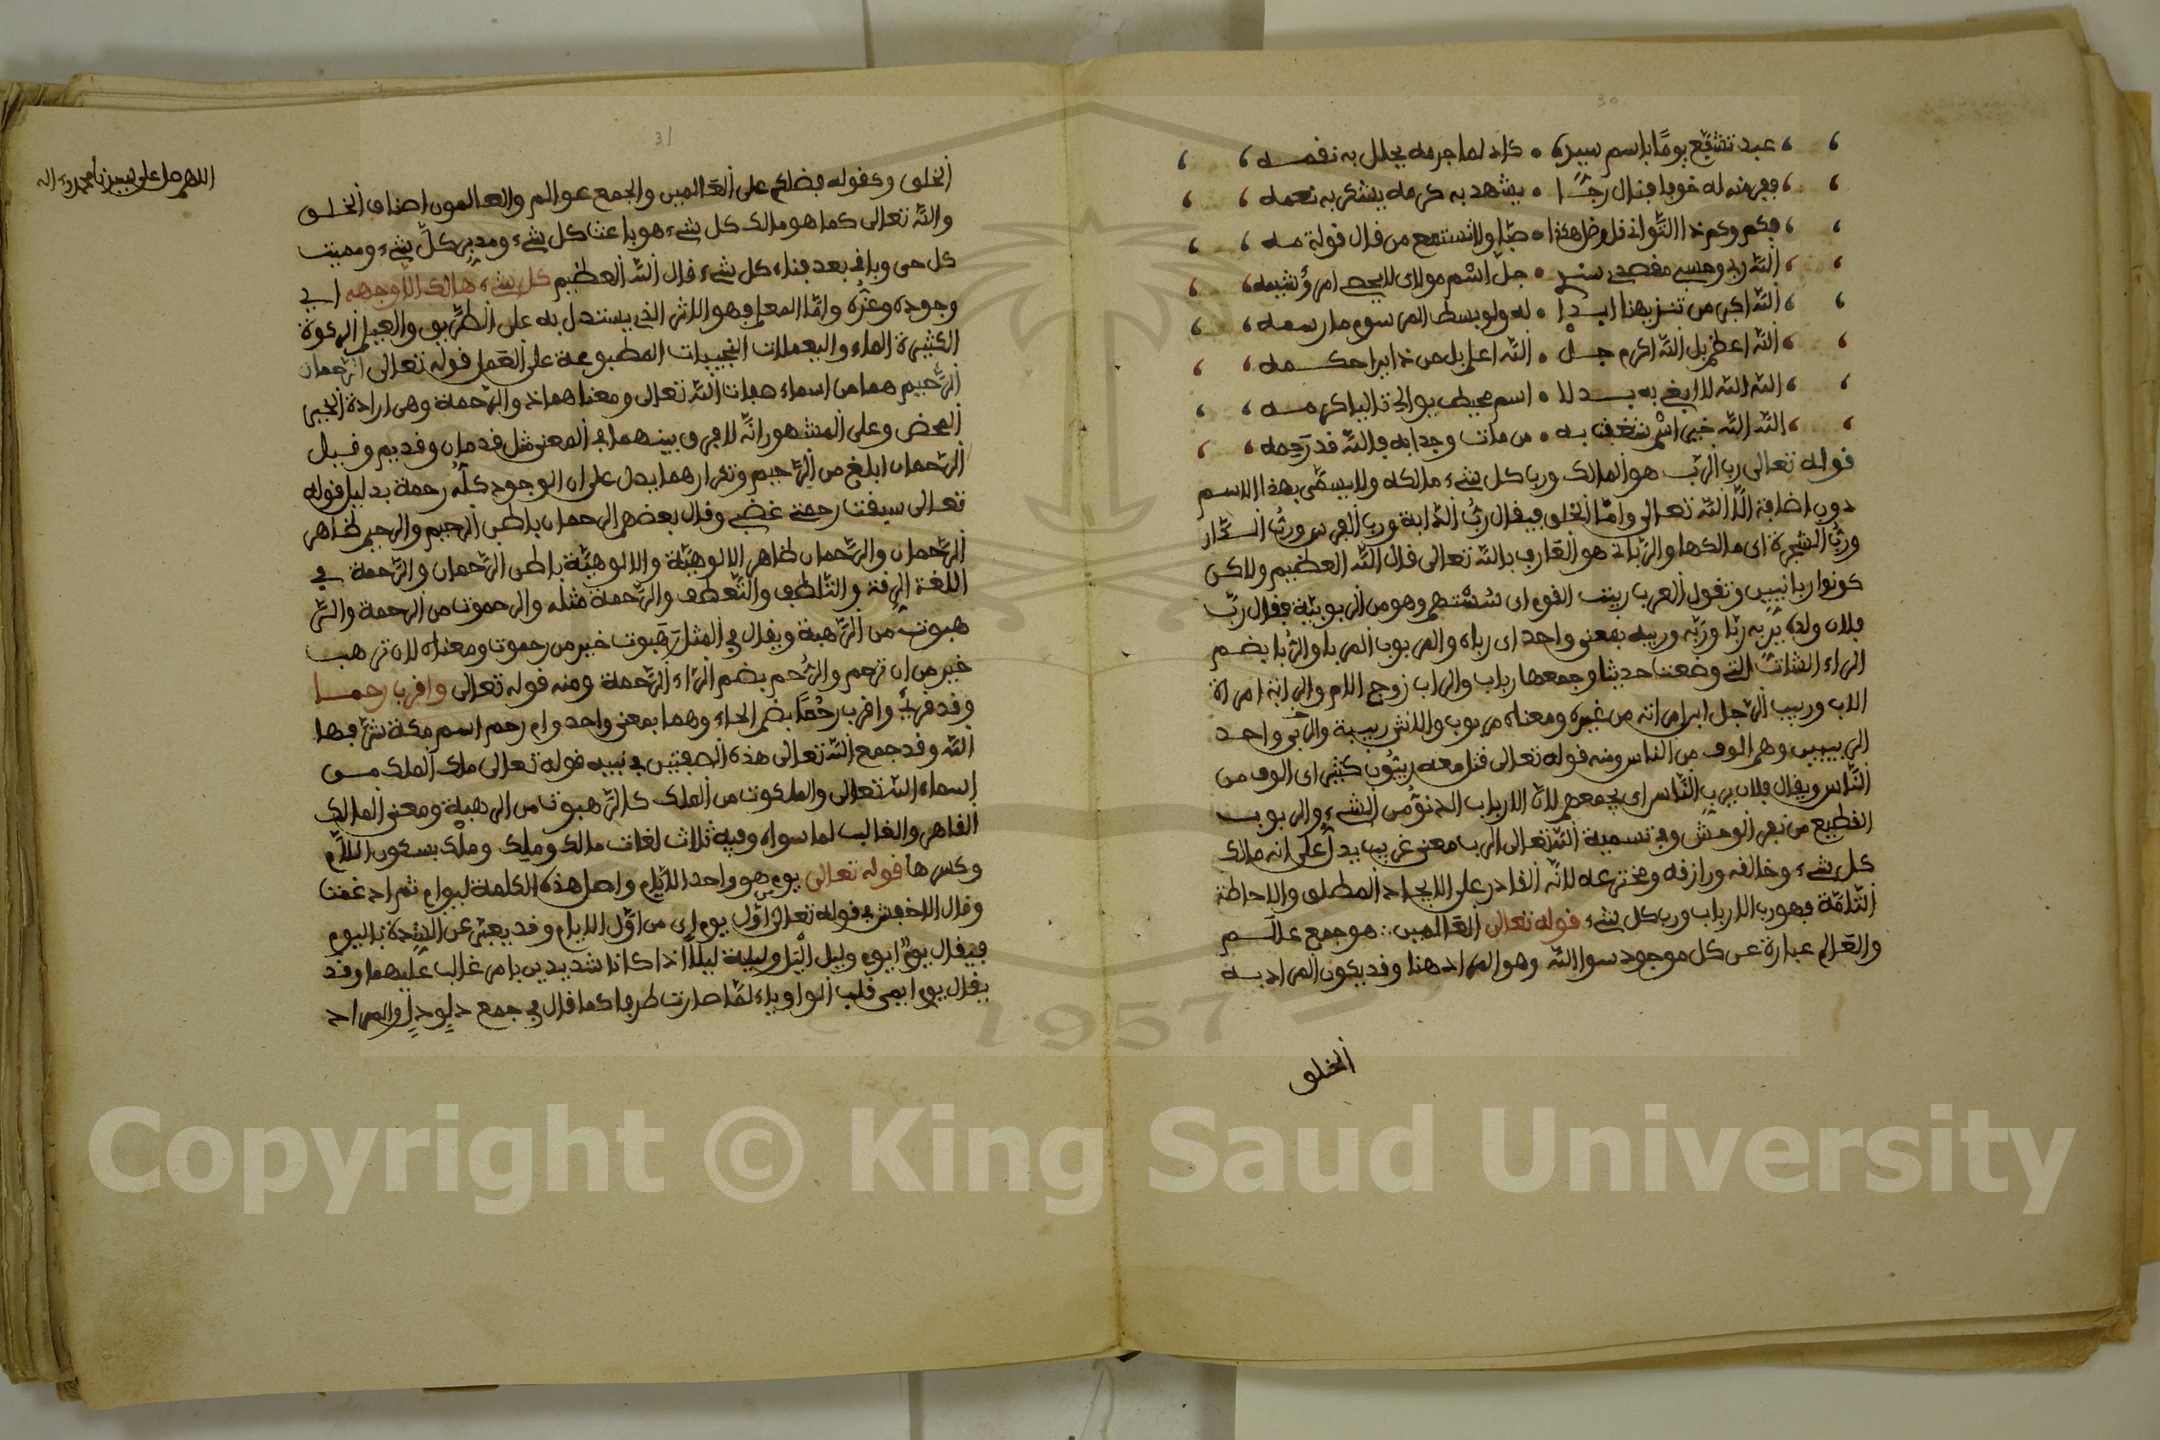 30
عبد تشفع يوما باسم سيده • كاد لما جرمه يحلل به نقمه
ففر منه له خوفا فنال رجا • يشهد به كرمه يشكر به نعمه
فكم وكم ذا التواني
الله ربي وحسبي مقصدي سندي • جل اسم مولاي
الله اكبر من تنزيهنا ابدا • له ولو بسط المرسوم ما رسمه
الله اعظم بل الله اكرم جل • الله اعلم بل من ذا يرا حكمه
الله الله لا ابغي به بدلا • اسم محيط
الله الله خير اسم نتغف به • من مات وجدا به فالله قد رحمه
قوله تعالى رب الرب هو المالك ورب كل شيء مالكه ولا يسمى بهذا الاسم
دون اضافة الا الله تعالى واما الخلق فيقال رب الدابة ورب الفرس ورب الدار
ورب الشجرة اي مالكها والرباني هو العارف بالله تعالى قال الله العظيم ولاكن
كونوا ربانيين وتقول العرب ربيت القوم اي سستهم وهو من الربوبية فقال رب
فلان ولده يربه ربا وربه وربيه بمعنى واحد اي رباه والمربوب المربا والربا بضم
الراء الشات التي وضعت حديثا وجمعها رباب والراب زوج الام والرابة امراة
الاب وربيب الرجل ابن امراته من غيره ومعناه مربوب والانثى ربيبة والربي واحد
الربييين وهم الوف من الناس ومنه قوله تعالى قتل معه ربيون كثير اي الوف من
الناس ويقال فلان يرب الناس اي يجمعهم لان الارباب الدنو من الشيء والربوب
القطيع من بقر الوحش وفي تسمية الله تعالى الرب معنى غريب يدل على انه مالك
كل شيء وخالقه ورازقه ومخترعه لانه القادر على الايجاد المطلق والاحاطة
التامة فهو رب الارباب ورب كل شيء قوله تعالى العالمين هو جمع عالم
والعالم عبارة عن كل موجود سوا الله وهو المراد هنا وقد يكون المراد به
الخلق
31
اللهم صل على سيدنا محمد وآله
الخلق وكقوله فضلكم على العالمين والجمع عوالم والعالمون اصناف الخلق
والله تعالى كما هو مالك كل شيء هو باعث كل شيء ومدبر كل شيء ومميت
كل حي وباق بعد فناء كل شيء قال الله العظيم كل شيء هالك الا وجهه اي
وجوده وعزه واما المعلم فهو الاثر الذي يستدل به على الطريق والعيلم الركوة
الكثيرة الماء واليعملات النجيبات المطبوعة على العمل قوله تعالى الرحمان
الرحيم هما من اسماء صفات الله تعالى ومعناهما ذو الرحمة وهي ارادة الخير
المحض وعلى المشهور انه لا فرق بينهما في المعنى مثل قدمان وقديم وقيل
الرحمان ابلغ من الرحيم وتكرارهما يدل على ان الوجود كله رحمة بدليل قوله
تعالى سبقت رحمتي غضبي وقال بعضهم الرحمان باطن الرحيم والرحيم ظاهر
الرحمان والرحمان ظاهر الالوهية والالوهية باطن الرحمان والرحمة في
اللغة الرقة والتلطف والتعطف والرحمة مثله والرحموت من الرحمة والر
هبوت من الرهبة ويقال في المثل رهبوت خير من رحموت ومعناه لان ترهب
خير من ان ترحم والرحم بضم الراء الرحمة ومنه قوله تعالى واقرب رحما
وقد قرئ واقرب رحما بضم الحاء وهما بمعنى واحد وام رحم اسم مكة شرفها
الله وقد جمع الله تعالى هذه الصفتين في نبيه قوله تعالى ملك الملك من
اسماء الله تعالى والملكوت من الملك كالرهبوت من الرهبة ومعنى المالك
القاهر والغالب لما سواه وفيه ثلاث لغات مالك ومليك وملك بسكون اللام
وكسرها قوله تعالى يوم هو واحد الايام واصل هذه الكلمة ايوام ثم ادغمت
وقال الاخفش في قوله تعالى من اول يوم اي من اول الايام وقد يعبر عن الشدة باليوم
فيقال يوم ايوم وليل اليل وليلة ليلا اذا كانا شديدين بامر غالب عليهما وقد
يقال يوم ايمى قلب الواو ياء لما صارت طرفا كما قال في جمع دلو ادل والمراد
1957
Copyright © King Saud University